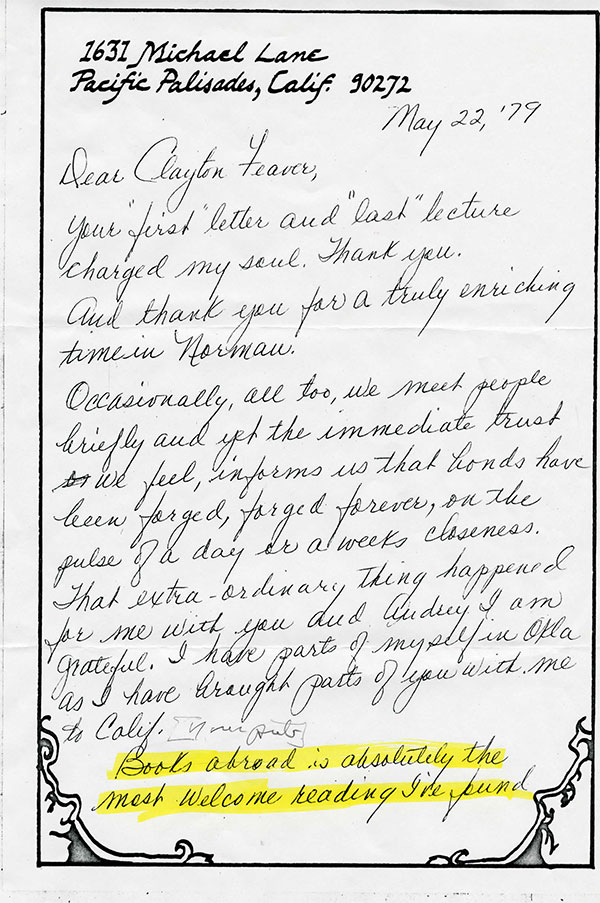 1631 Michael Lane
Pacific Palisades, Calif. 90272
May 22, '79
Dear Clayton Feaver,
your "first" letter and "last" lecture
charged my soul. Thank you.
And thank you for a truly enriching
time in Norman.
Occasionally, all too, we meet people
briefly and yet the immediate trust
we feel, informs us that bonds have
been forged, forged forever, on the
pulse of a day or a weeks closeness.
That extra-ordinary thing happened
for me with you and Audrey I am
grateful. I have parts of myself in Okla
as I have brought parts of you with me
to Calif.
Books abroad is absolutely the
most welcome reading I've found